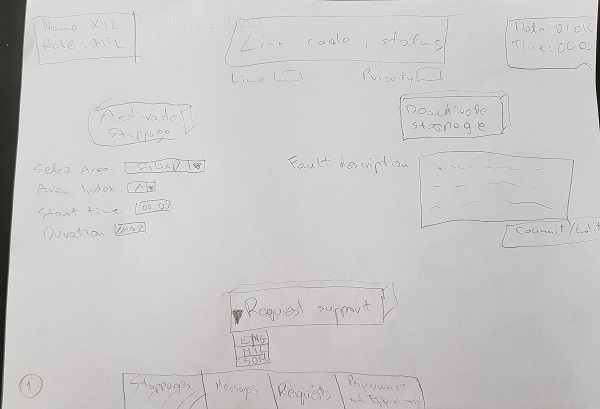 Name XYZ
Role: MTL
Line code, status
Date: 01.01.0
Time: 00:00
Line
Priority
Activate
Stoppage
Deactivate
stoppage
Select Area:
Area Index A
Start time 00:00
Duration
Fault description
Commit/Edit
Request support
ENG
MTL
SOM
1
Stoppages
Messages
Requests
Performance
and Efficiency